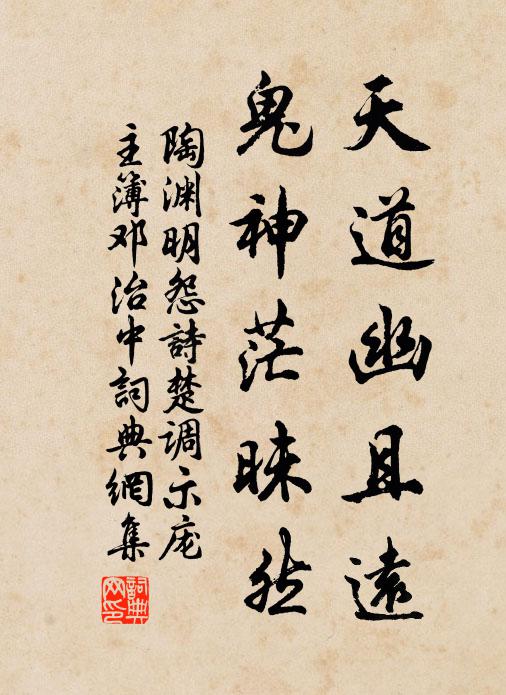 天道幽且遠
鬼神茫昧然
陶渊明怨詩楚调示庞
主簿邓治中詞典網集
詞典网印